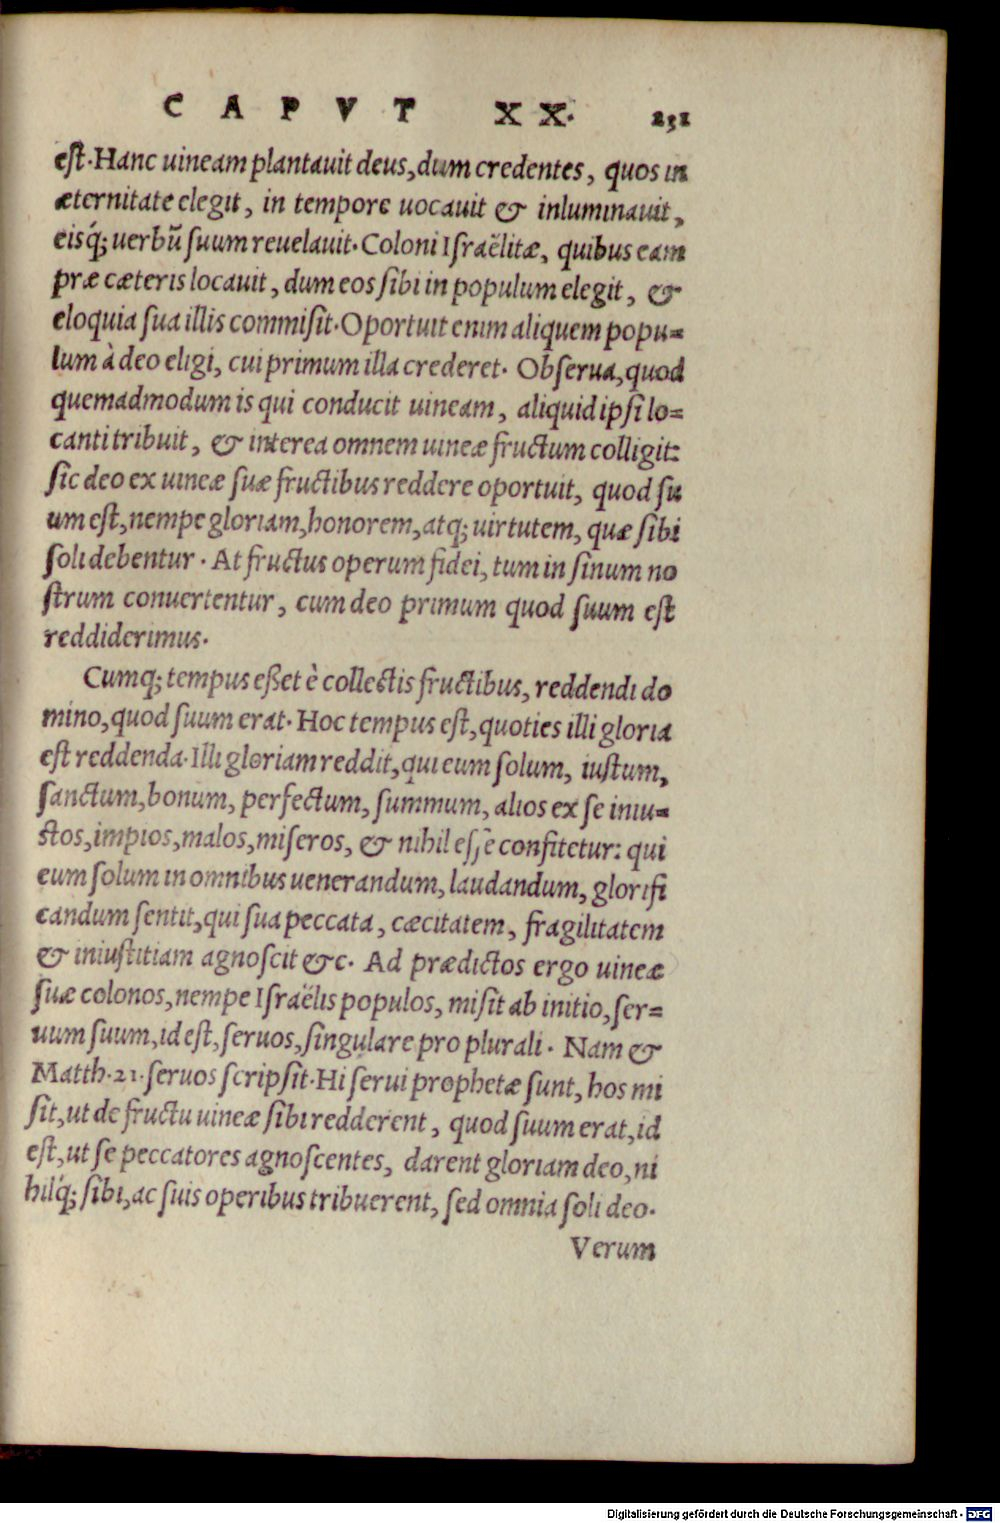 CAPVT XX. 231
est. Hanc uineam plantauit deus, dum credentes, quos in
æternitate elegit, in tempore uocauit & inluminauit,
eisq́; uerbũ suum reuelauit. Coloni Israëlitæ, quibus eam
præ cæteris locauit, dum eos sibi in populum elegit, &
eloquia sua illis commisit. Oportuit enim aliquem popu=
lum à deo eligi, cui primum illa crederet. Obserua, quod
quemadmodum is qui conducit uineam, aliquid ipsi lo=
canti tribuit, & interea omnem uineæ fructum colligit:
sic deo ex uineæ suæ fructibus reddere oportuit, quod su
um est, nempe gloriam, honorem, atq; uirtutem, quæ sibi
soli debentur. At fructus operum fidei, tum in sinum no
strum conuertentur, cum deo primum quod suum est
reddiderimus.
Cumq; tempus esset è collectis fructibus, reddendi do
mino, quod suum erat. Hoc tempus est, quoties illi gloria
est reddenda. Illi gloriam reddit, qui eum solum, iustum,
sanctum, bonum, perfectum, summum, alios ex se iniu=
stos, impios, malos, miseros, & nihil esse confitetur: qui
eum solum in omnibus uenerandum, laudandum, glorifi
candum sentit, qui sua peccata, cæcitatem, fragilitatem
& iniustitiam agnoscit &c. Ad prædictos ergo uineæ
suæ colonos, nempe Israëlis populos, misit ab initio, ser=
uum suum, id est, seruos, singulare pro plurali. Nam &
Matth. 21. seruos scripsit. Hi serui prophetæ sunt, hos mi
sit, ut de fructu uineæ sibi redderent, quod suum erat, id
est, ut se peccatores agnoscentes, darent gloriam deo, ni
hilq́; sibi, ac suis operibus tribuerent, sed omnia soli deo.
Verum
Digitalisierung gefördert durch die Deutsche Forschungsgemeinschaft - DFG